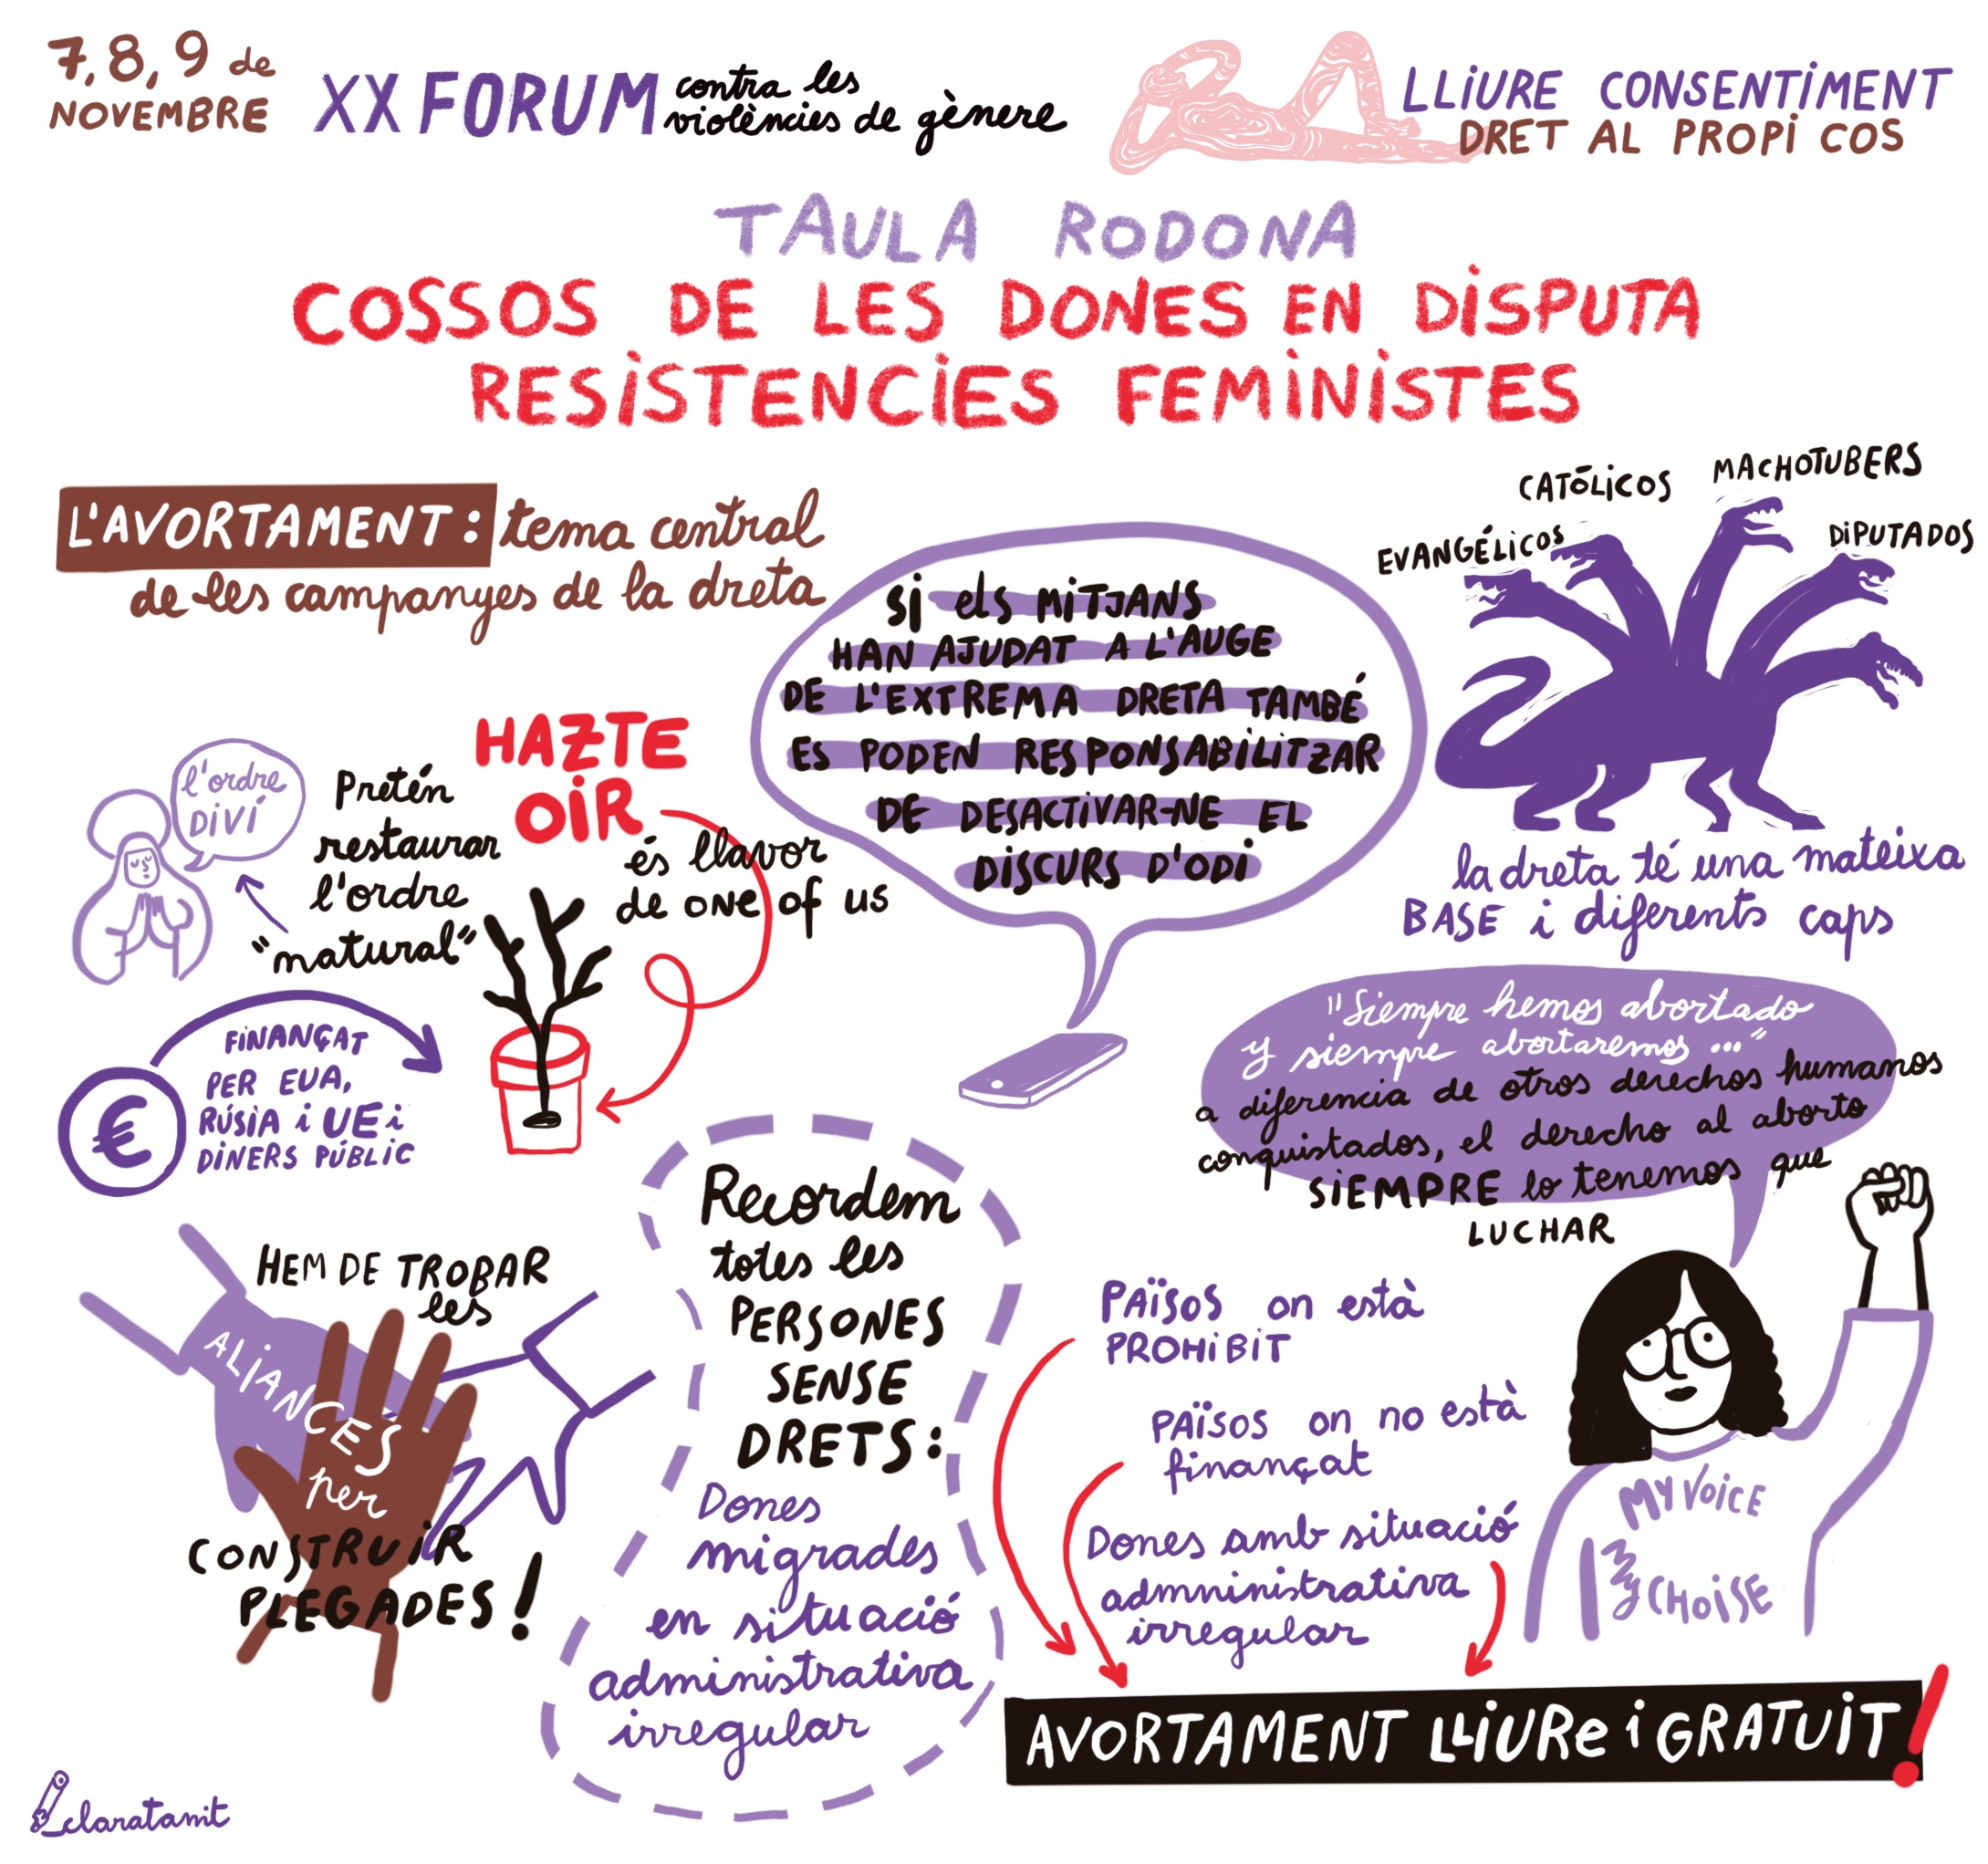 7, 8, 9 de
NOVEMBRE
XX FORUM
contra les
violències de gènere
LLiURE CONSENTiMENT
DRET AL PROPi COS
TAULA RODONA
COSSOS DE LES DONES EN DiSPUTA
RESiSTENCiES FEMiNiSTES
L'AVORTAMENT: tema central
de les campanyes de la dreta
Si els MiTJANS
HAN AJUDAT A L'AUGE
DE L'EXTREMA DRETA TAMBÉ
ES PODEN RESPONSABiLiTZAR
DE DESACTiVAR-NE EL
DiSCURS D'ODi
EVANGÉLiCOS
CATÓLiCOS
MACHOTUBERS
DiPUTADOS
la dreta té una mateixa
BASE i diferents caps
l'ordre
DiVÍ
Pretén
restaurar
l'ordre
"natural"
HAZTE
OiR
és llavor
de one of us
FiNANÇAT
PER EUA,
RÚSiA i UE i
DiNERS PÚBLiC
€
"Siempre hemos abortado
y siempre abortaremos ..."
a diferencia de otros derechos humanos
conquistados, el derecho al aborto
SiEMPRE lo tenemos que
LUCHAR
HEM DE TROBAR
les
ALiANCES
per
CONSTRUiR
PLEGADES!
Recordem
totes les
PERSONES
SENSE
DRETS:
Dones
migrades
en situació
administrativa
irregular
PAÏSOS on està
PROHiBiT
PAÏSOS on no està
finançat
Dones amb situació
admninistrativa
irregular
MY VOiCE
My CHOiSE
AVORTAMENT LLiURe i GRATUiT!
claratamit